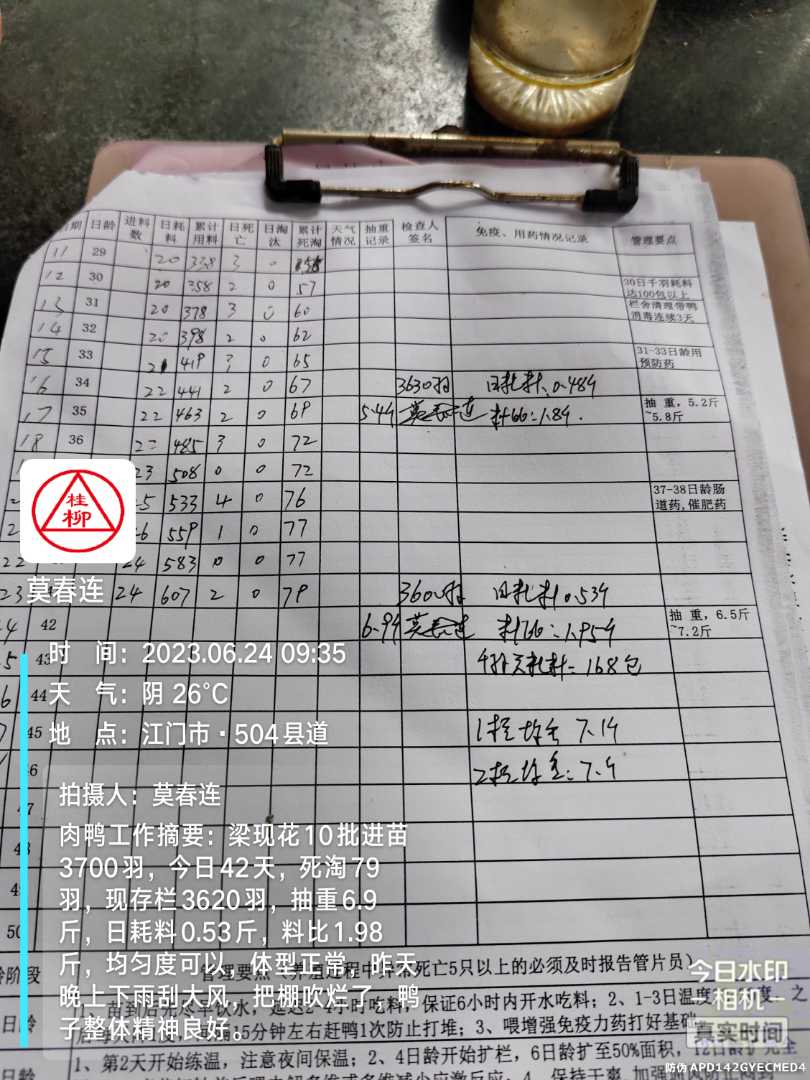 日期 日龄 进料数 日耗料 累计用料 日死亡 日淘汰 累计死淘 天气情况 抽重记录 检查人签名 免疫、用药情况记录 管理要点
11 29 20 338 3 0
12 30 20 358 2 0 57 30日千羽耗料达100包以上
13 31 20 378 3 0 60 栏舍清理带鸭消毒连续3天
14 32 20 398 2 0 62
15 33 21 419 3 0 65 31-33日龄用预防药
16 34 22 441 2 0 67 3630羽 日耗料
17 35 22 463 2 0 69 莫春连 抽重，5.2斤~5.8斤
18 36 22 485 3 0 72
23 508 0 0 72
5 533 4 0 76 37-38日龄肠道药,催肥药
6 559 1 0 77
22 24 583 0 0 77
23 24 607 2 0 79 3600羽 日耗料
42 莫春连 抽重，6.5斤~7.2斤
43 168包
44
45
47
50
桂柳
莫春连
时 间：2023.06.24 09:35
天 气：阴 26℃
地 点：江门市·504县道
拍摄人：莫春连
肉鸭工作摘要：梁现花10批进苗
3700羽，今日42天，死淘79
羽，现存栏3620羽，抽重6.9
斤，日耗料0.53斤，料比1.98
斤，均匀度可以，体型正常，昨天
晚上下雨刮大风，把棚吹烂了，鸭
子整体精神良好。
死亡5只以上的必须及时报告管片员）
小时吃料，保证6小时内开水吃料；2、1-3日温度
15分钟左右赶鸭1次防止打堆；3、喂增强免疫力药打好基础
1、第2天开始练温，注意夜间保温；2、4日龄开始扩栏，6日龄扩至50%面积，12日龄扩完全
今日水印
相机
真实时间
防伪 APD142GYECMED4